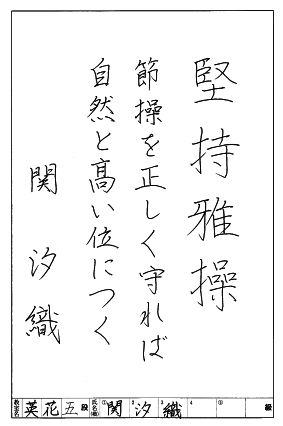 堅持雅操
節操を正しく守れば
自然と高い位につく
関汐織
教室名 英花 五 段 氏名(号) ① 関 2 汐 3 織 4 ⑤ 級